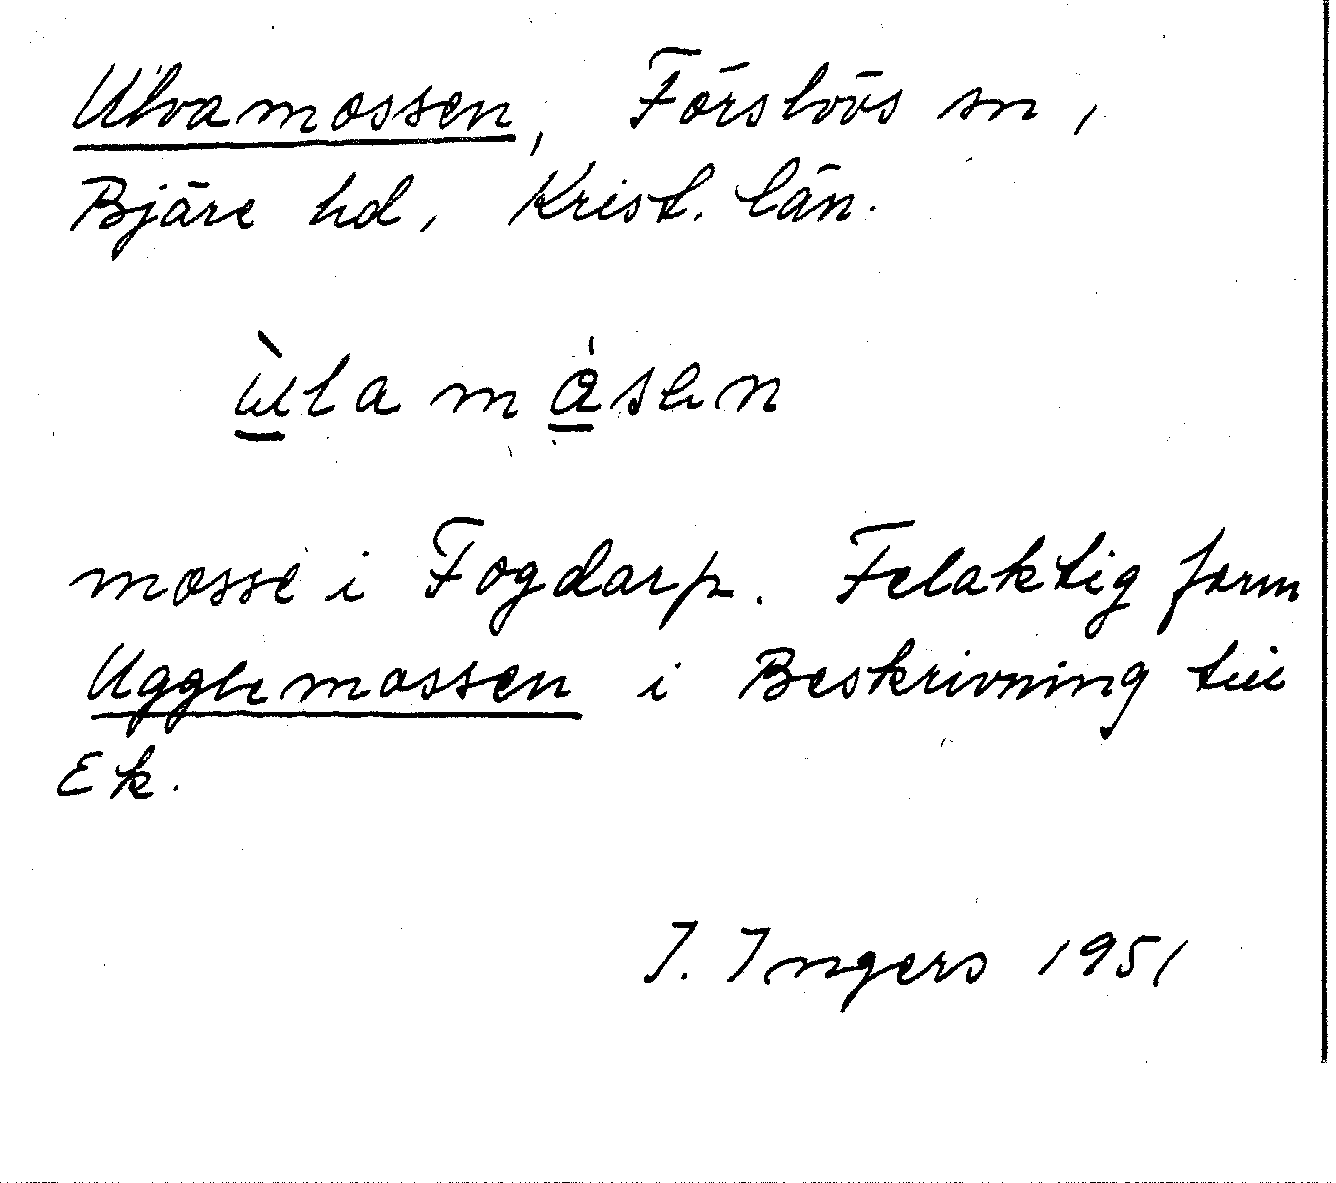 Ulvamossen, Förslövs sn,
Bjäre hd, Krist. län.
ùlamåsen
mosse i Fogdarp. Felaktig form
Ugglemossen i Beskrivning till
Ek.
I. Ingers 1951